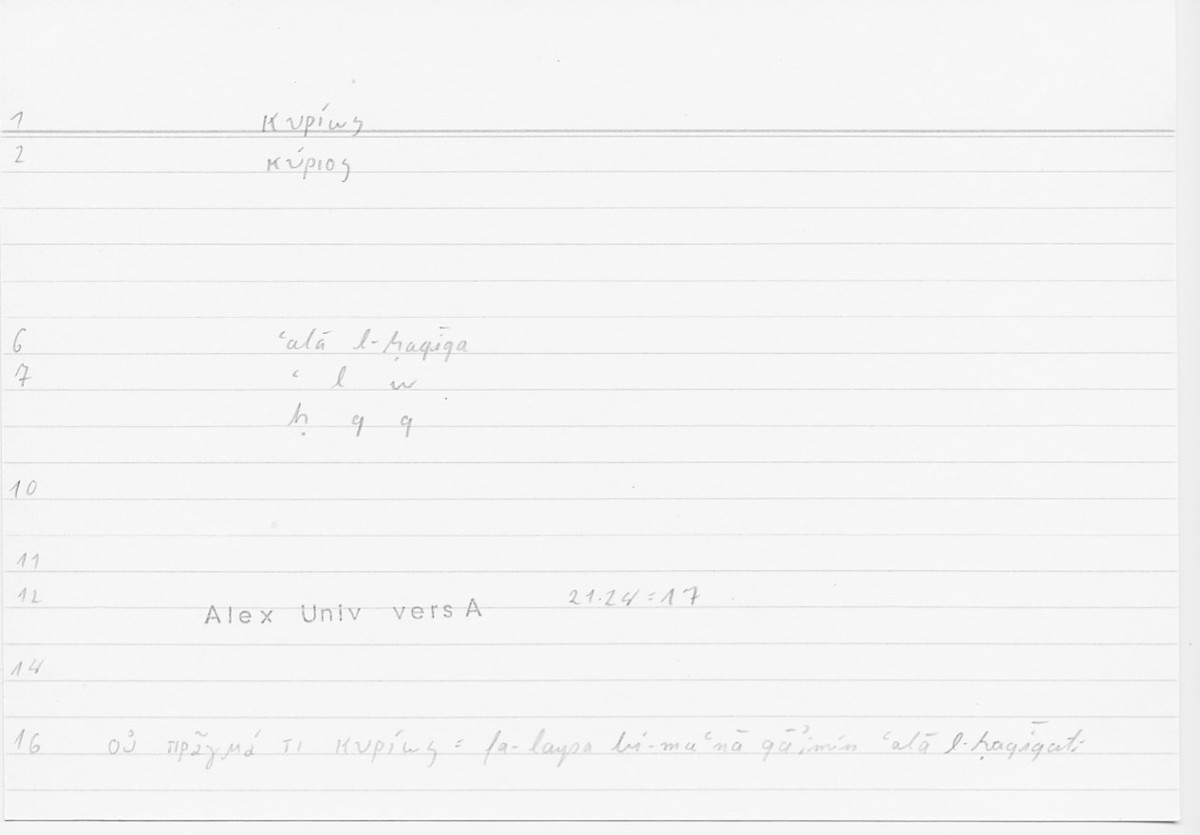 1 κυρίως
2 κύριος
6 ʿalā l-ḥaqīqa
7 ʿ l w
ḥ q q
10
11
12 Alex Univ vers A 21.24=17
14
16 οὐ πρᾶγμά τι κυρίως = fa-laysa bi-maʿnā qāʾimin ʿalā l-ḥaqīqati